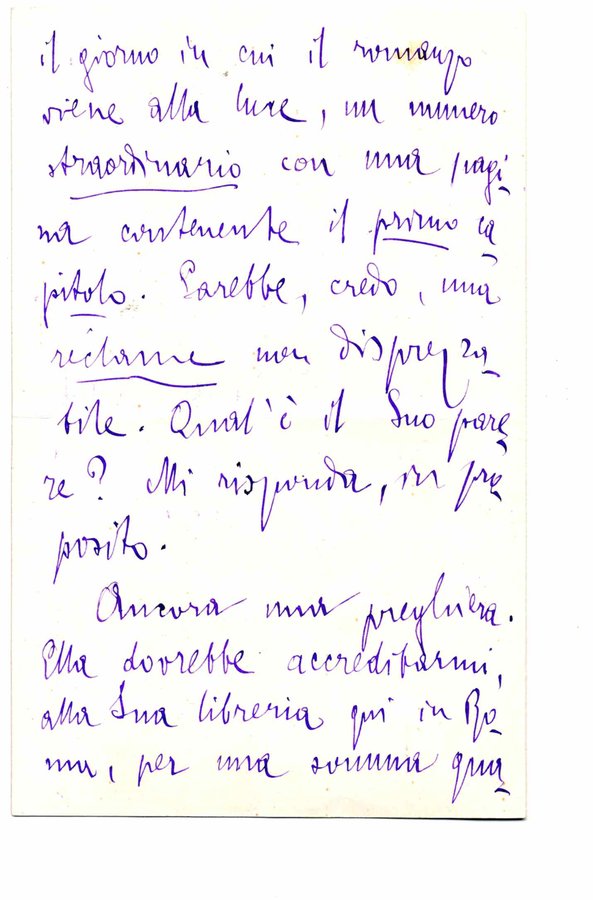 il giorno in cui il romanzo
viene alla luce, un numero
straordinario con una pagi
na contenente il primo ca
pitolo. Sarebbe, credo, una
réclame non disprezza
bile. Qual'è il Suo pare
re? Mi risponda, in pro
posito.
Ancora una preghiera.
Ella dovrebbe accreditarmi,
alla Sua libreria qui in Ro
ma, per una somma qua